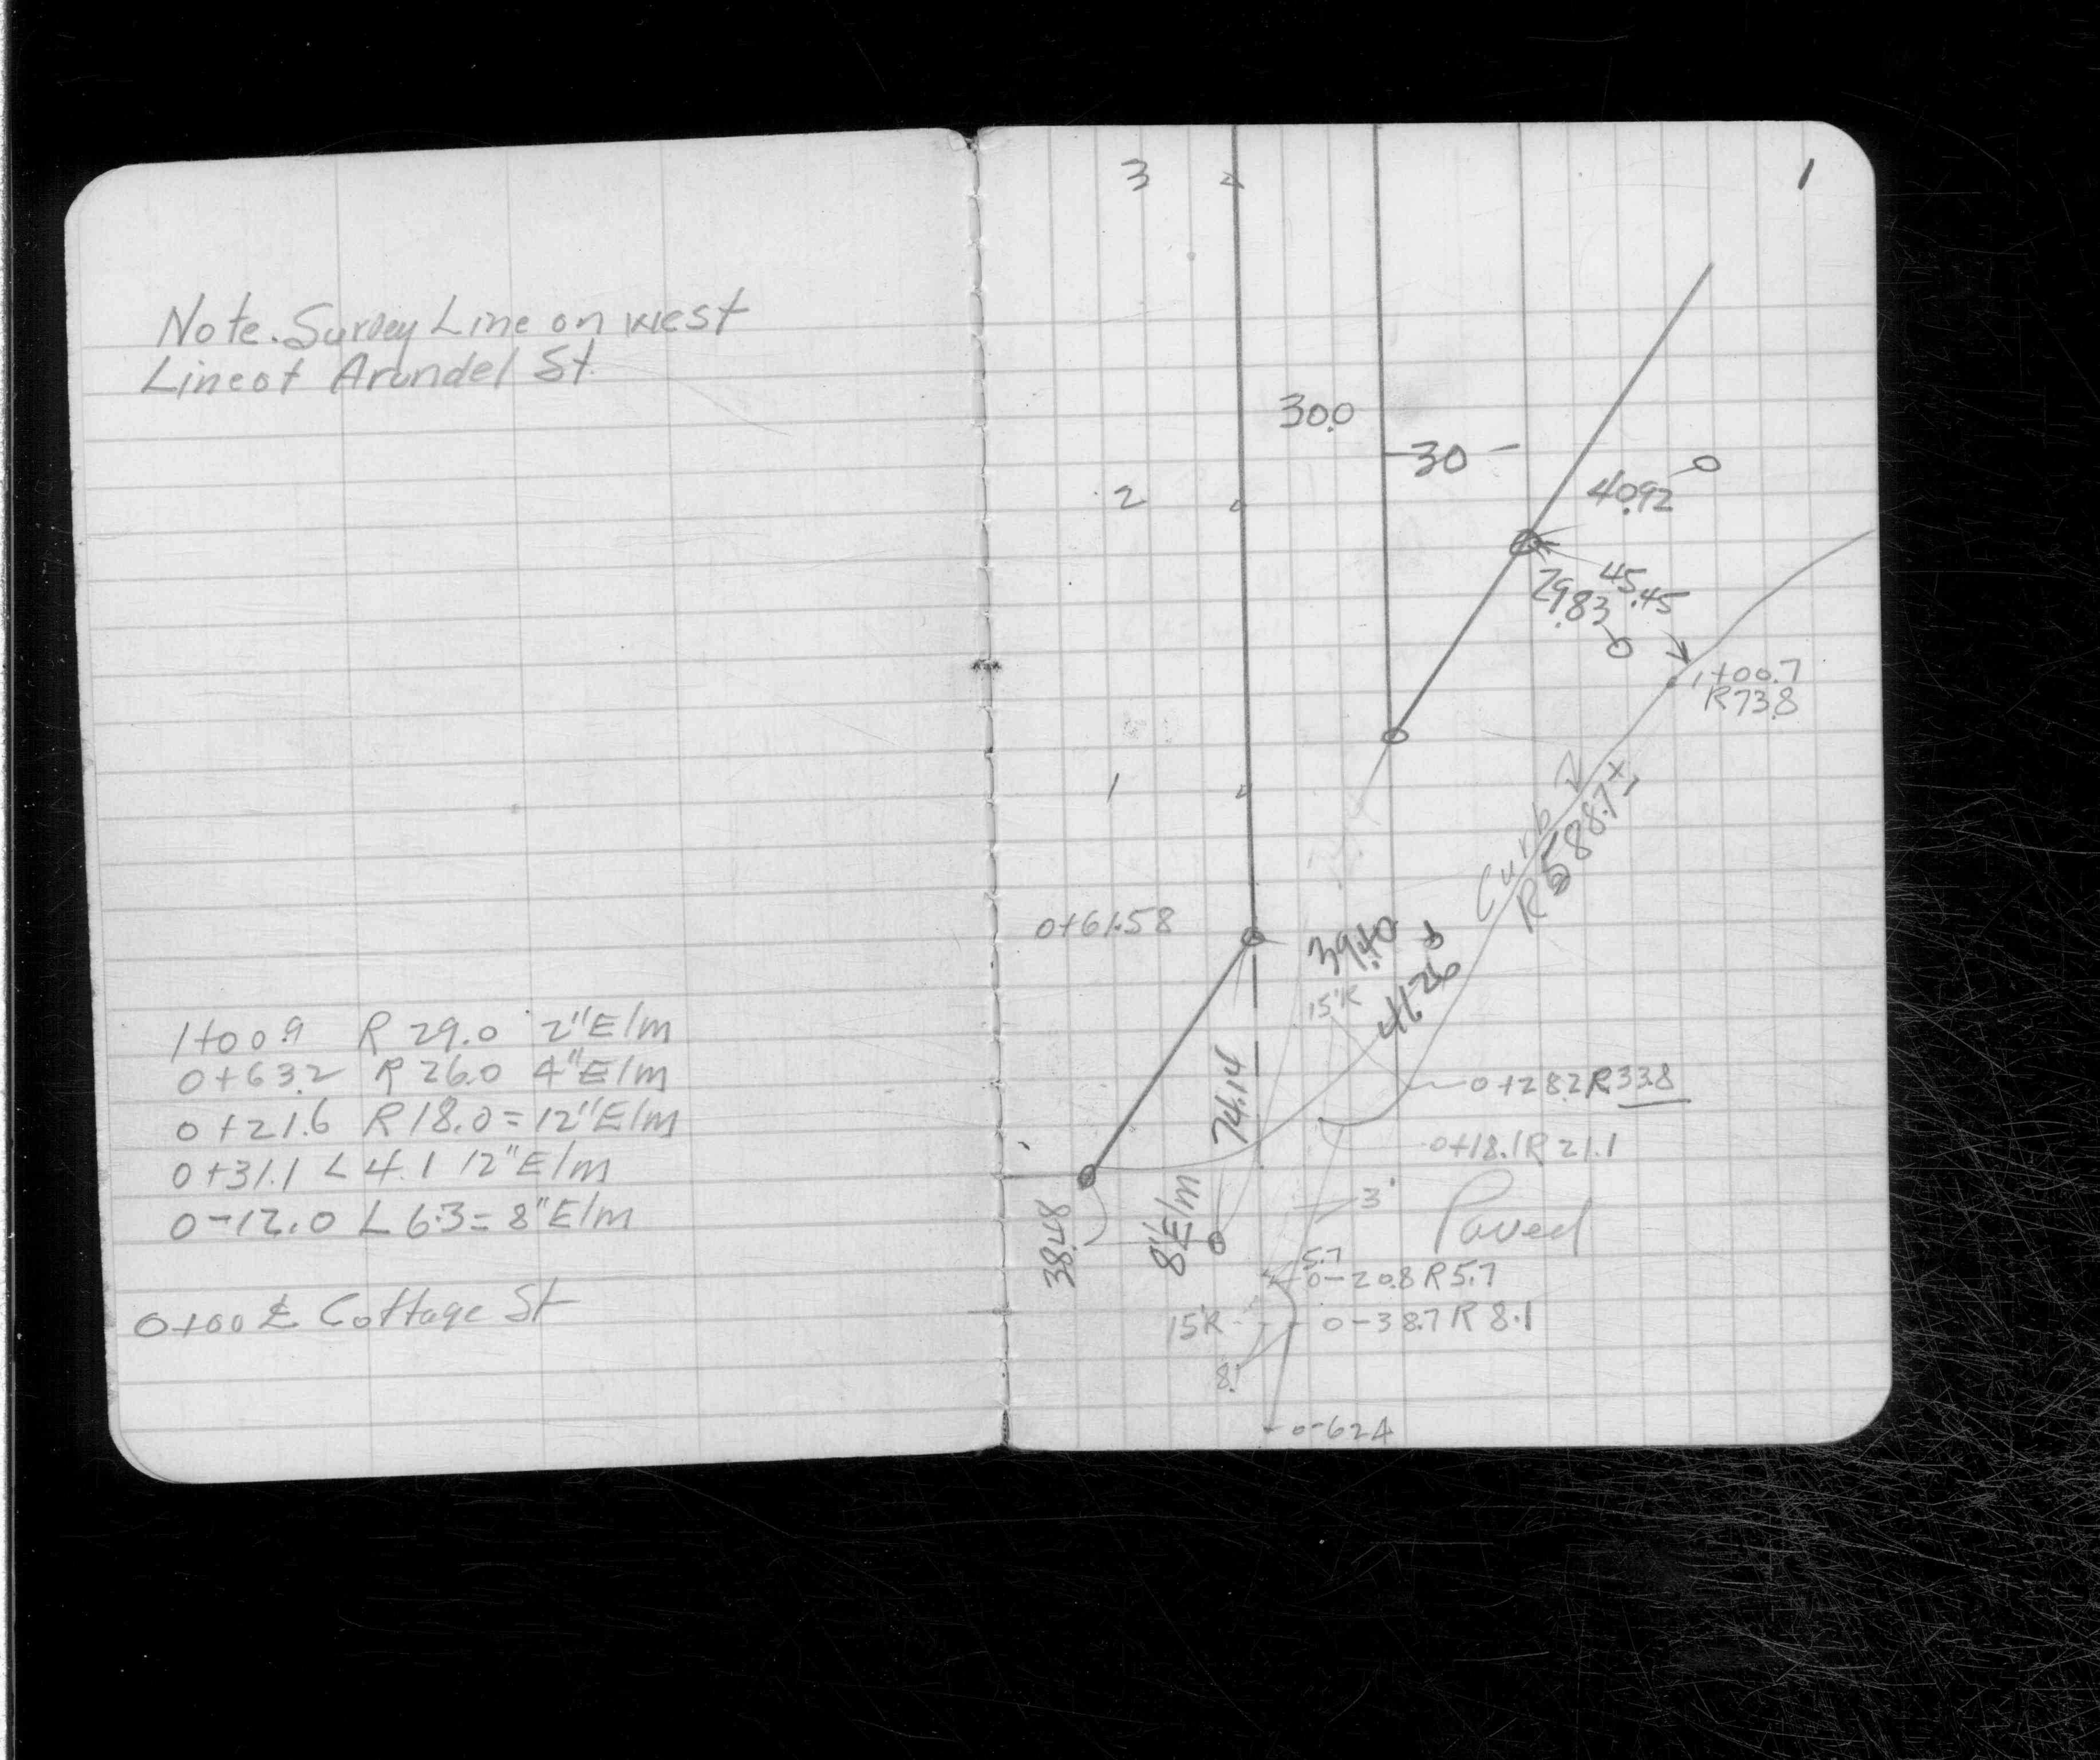 Note. Survey Line on west
Line of Arundel St.
1+00.9 R 29.0 2"Elm
0+63.2 R 26.0 4"Elm
0+21.6 R 18.0 = 12"Elm
0+31.1 L 4.1 12"Elm
0-12.0 L 6.3 = 8"Elm
0+00 ℄ Cottage St
1
3
30.0
30
2
40.92
45.45
29.83
1+00.7
R 73.8
1
Curb
0+61.58
39.40
15'R
41.26
74.14
0+28.2 R 33.8
0+18.1 R 21.1
3'
Paved
38.48
8"Elm
5.7
0-20.8 R 5.7
15'R
0-38.7 R 8.1
8.1
0-62.4